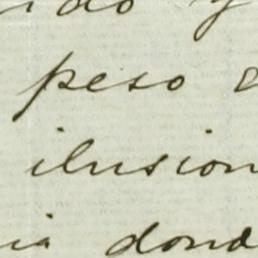 ido y
peso
ilusion
ia dond